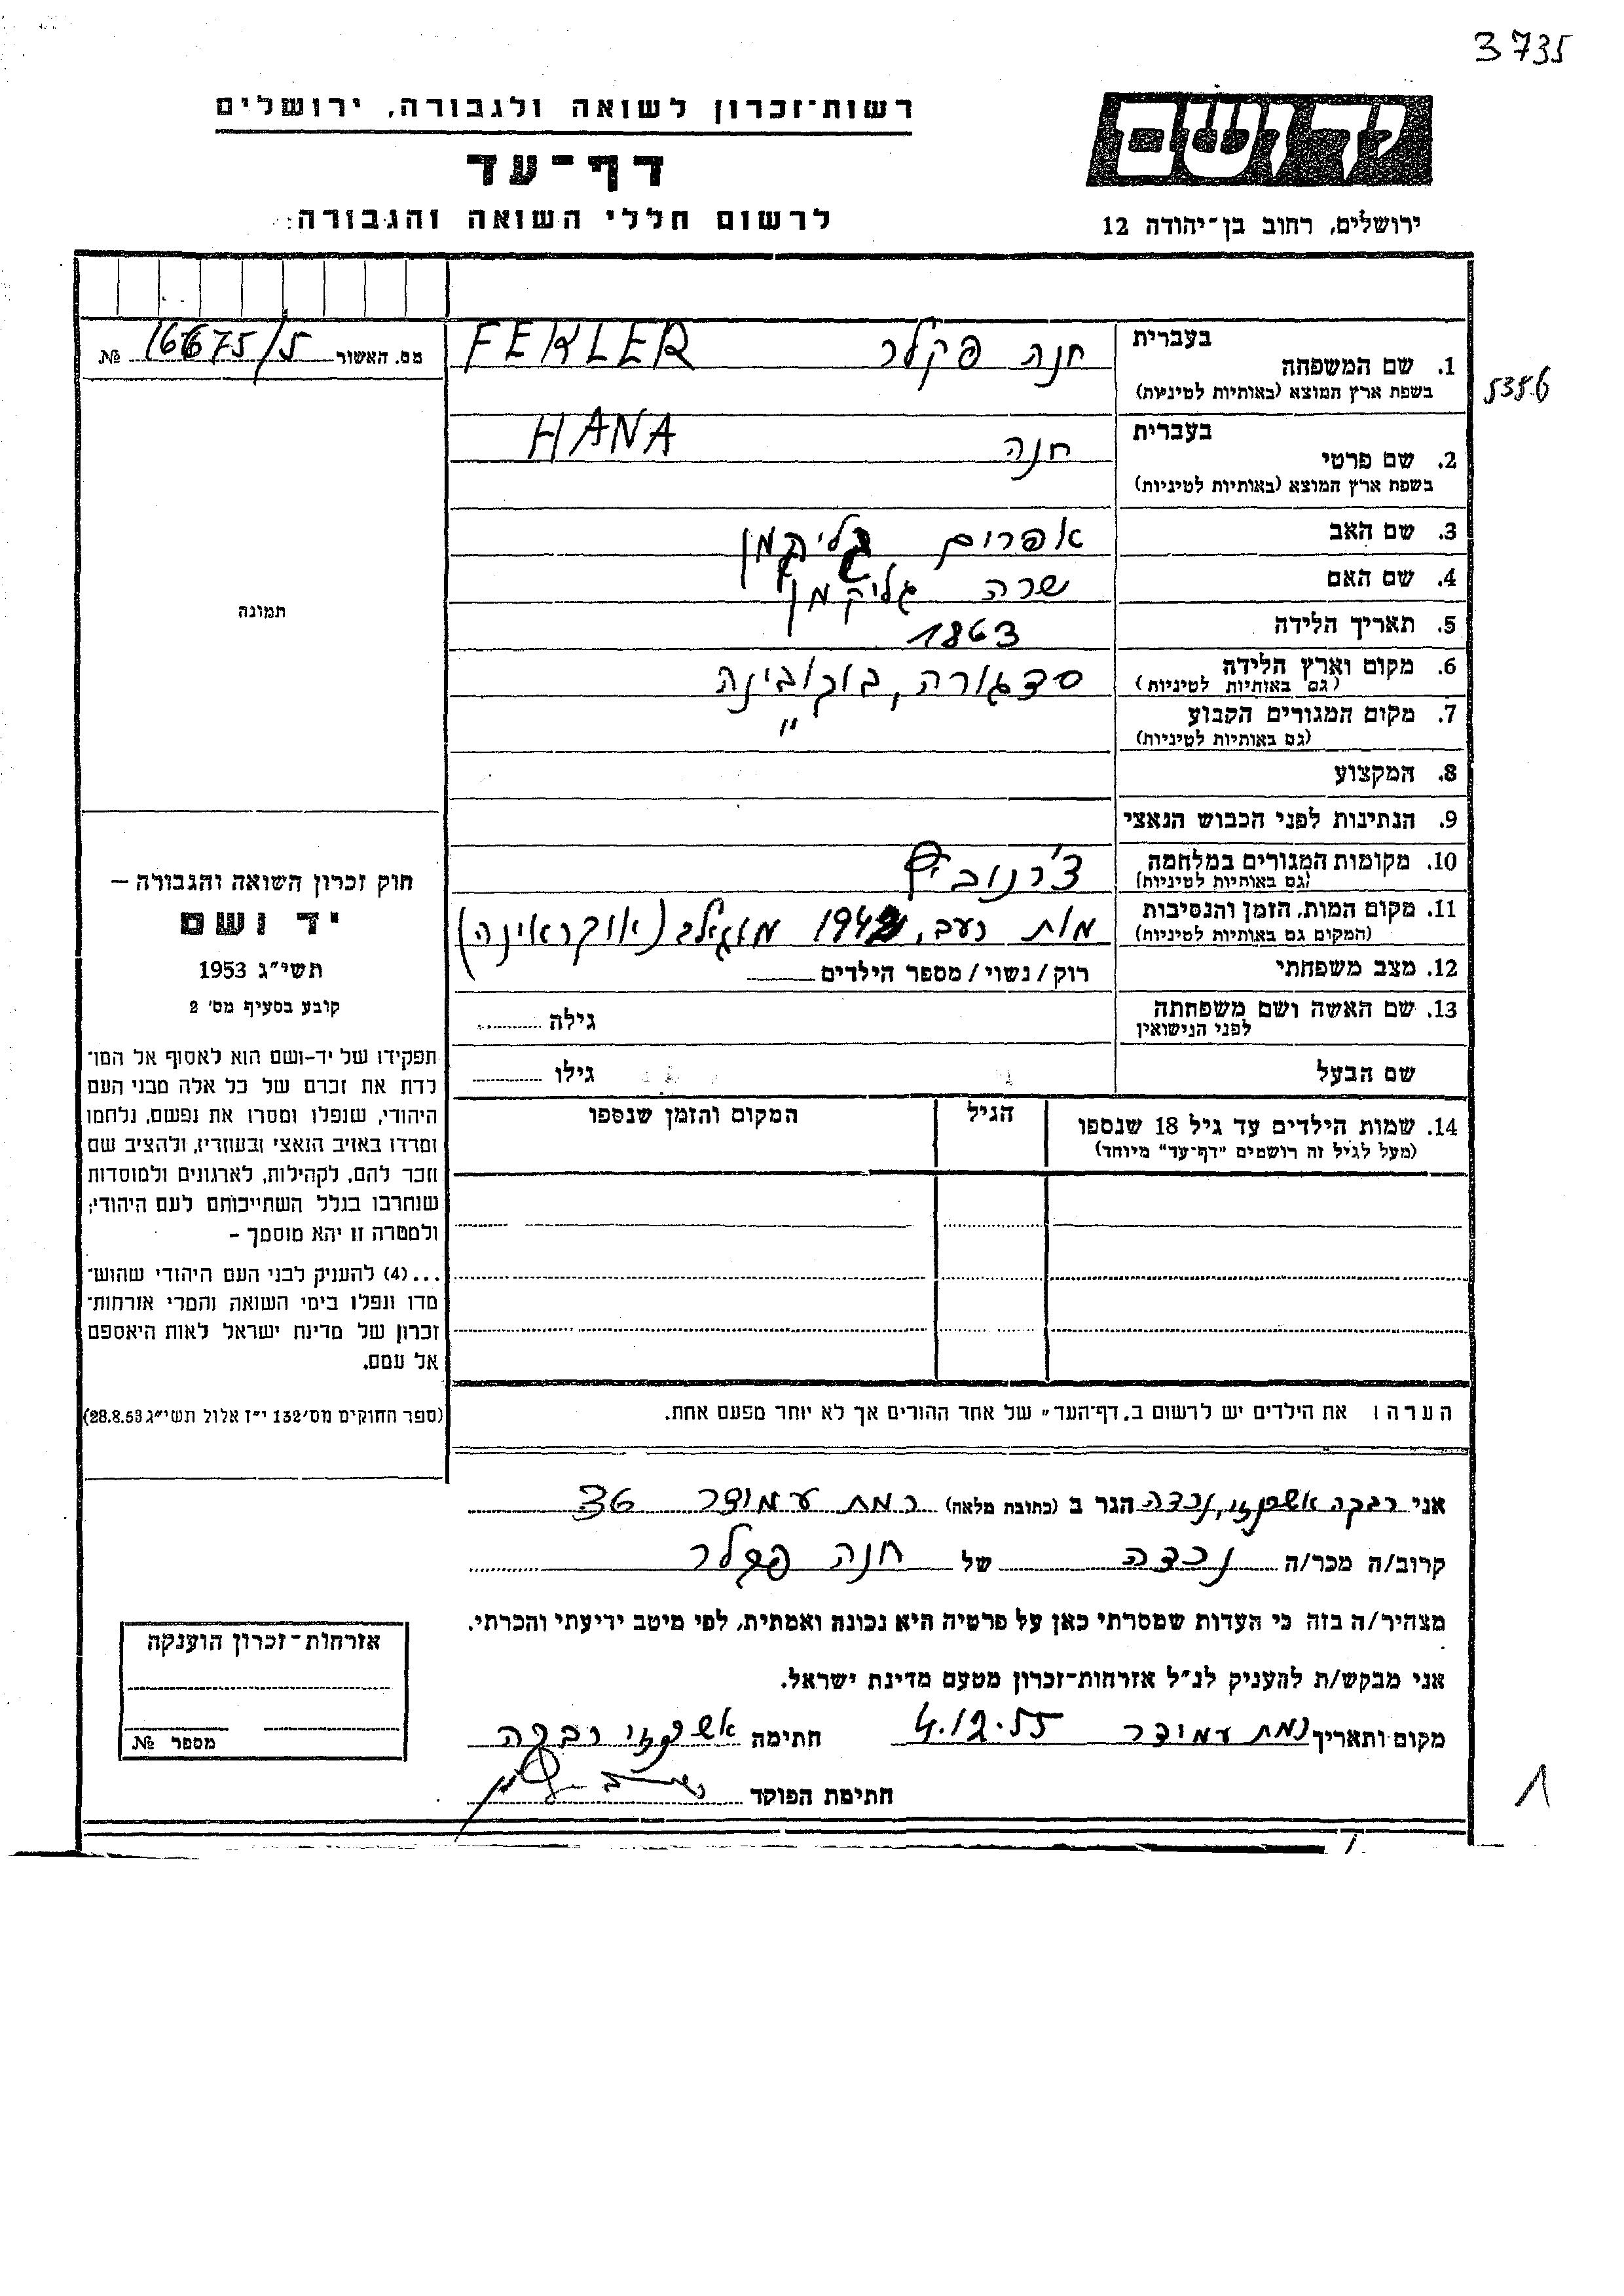 3735
רשות־זכרון לשואה ולגבורה, ירושלים
דף־עד
לרשום חללי השואה והגבורה:
יד ושם
ירושלים, רחוב בן־יהודה 12
5356
מס. האשור 16675/5 №
תמונה
חוק זכרון השואה והגבורה –
יד ושם
תשי״ג 1953
קובע בסעיף מס׳ 2
תפקידו של יד-ושם הוא לאסוף אל המו־
לדת את זכרם של כל אלה מבני העם
היהודי, שנפלו ומסרו את נפשם, נלחמו
ומרדו באויב הנאצי ובעוזריו, ולהציב שם
וזכר להם, לקהילות, לארגונים ולמוסדות
שנחרבו בגלל השתייכותם לעם היהודי;
ולמטרה זו יהא מוסמך –
...(4) להעניק לבני העם היהודי שהוש־
מדו ונפלו בימי השואה והמרי אזרחות־
זכרון של מדינת ישראל לאות היאספם
אל עמם.
(ספר החוקים מס׳ 132 י״ז אלול תשי״ג 28.8.53)
בעברית
1. שם המשפחה חנה פקלר FEKLER
בשפת ארץ המוצא (באותיות לטיניות)
בעברית
2. שם פרטי חנה HANA
בשפת ארץ המוצא (באותיות לטיניות)
3. שם האב אפרים גליקמן
4. שם האם שרה גליקמן
5. תאריך הלידה 1863
6. מקום וארץ הלידה סדגורה, בוקובינה
(גם באותיות לטיניות)
7. מקום המגורים הקבוע "
(גם באותיות לטיניות)
8. המקצוע
9. הנתינות לפני הכבוש הנאצי
10. מקומות המגורים במלחמה צ׳רנוביץ
(גם באותיות לטיניות)
11. מקום המות, הזמן והנסיבות מות רעב, 1942 מוגילב (אוקראינה)
(המקום גם באותיות לטיניות)
12. מצב משפחתי רוק / נשוי / מספר הילדים
13. שם האשה ושם משפחתה גילה
לפני הנישואין
שם הבעל גילו
14. שמות הילדים עד גיל 18 שנספו הגיל המקום והזמן שנספו
(מעל לגיל זה רושמים "דף־עד" מיוחד)
הערה: את הילדים יש לרשום ב„דף־העד״ של אחד ההורים אך לא יותר מפעם אחת.
אני רבקה אשכנזי, נכדה הגר ב (כתובת מלאה) רמת עמידר 36
קרוב/ה מכר/ה נכדה של חנה פקלר
מצהיר/ה בזה כי העדות שמסרתי כאן על פרטיה היא נכונה ואמתית, לפי מיטב ידיעתי והכרתי.
אני מבקש/ת להעניק לנ״ל אזרחות־זכרון מטעם מדינת ישראל.
מקום ותאריך רמת עמידר 4.12.55 חתימה אשכנזי רבקה
חתימת הפוקד
אזרחות־זכרון הוענקה
מספר №
1